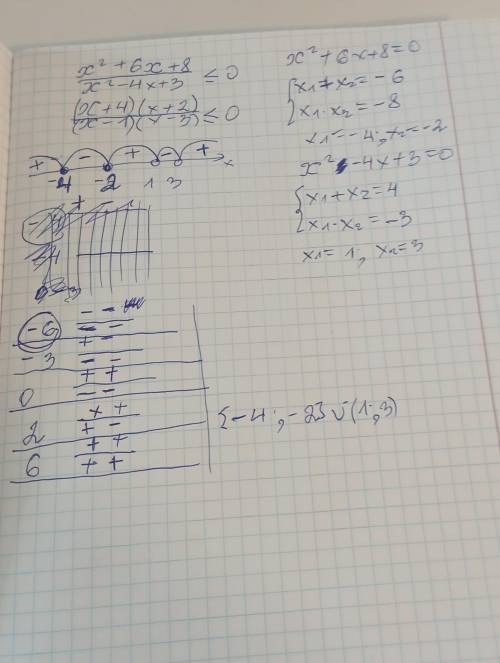 x² + 6x + 8 / x² - 4x + 3 ≤ 0
(x + 4)(x + 2) / (x - 1)(x - 3) ≤ 0
+ - + - + x
-4 -2 1 3
-6 - - / - -
-3 + - / - -
0 + + / - -
2 + + / + -
6 + + / + +
x² + 6x + 8 = 0
{ x1 + x2 = -6
x1 · x2 = -8
x1 = -4; x2 = -2
x² - 4x + 3 = 0
{ x1 + x2 = 4
x1 · x2 = -3
x1 = 1; x2 = 3
[-4; -2] ∪ (1; 3)